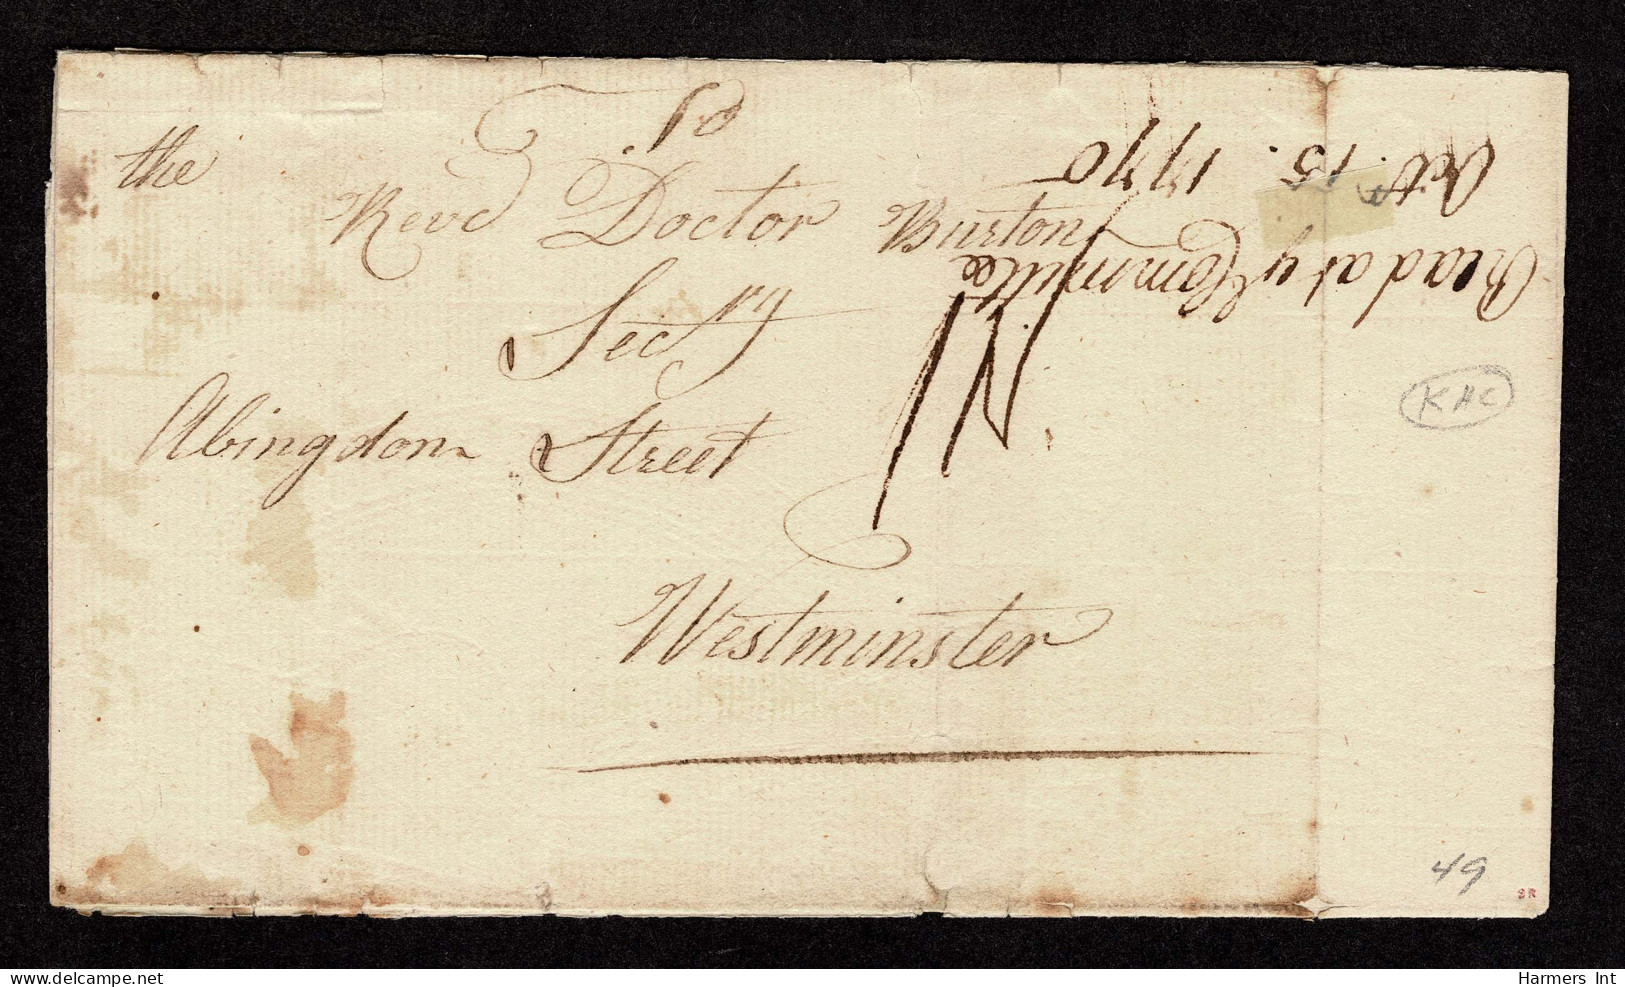 the
Revd Doctor Burton
Secry
Abingdon Street
Westminster
Read at ye Committee
Octr. 15. 1770
KHC
49
SR
Harmers Int